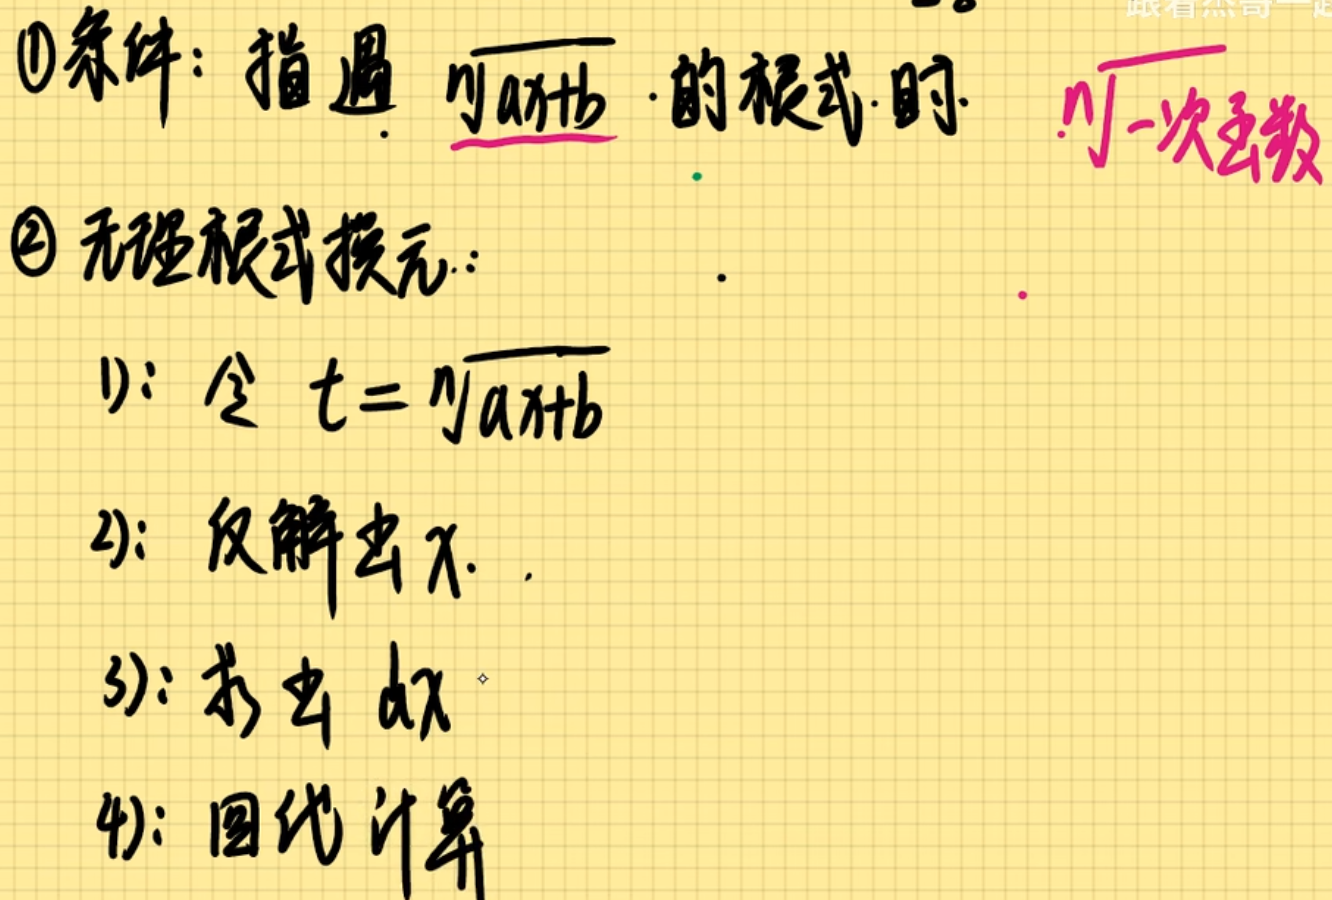 跟着杰哥一起
①条件: 指遇 ⁿ√ax+b 的根式时 ⁿ√一次函数
② 无理根式换元:
1): 令 t = ⁿ√ax+b
2): 反解出x.
3): 求出 dx
4): 回代计算